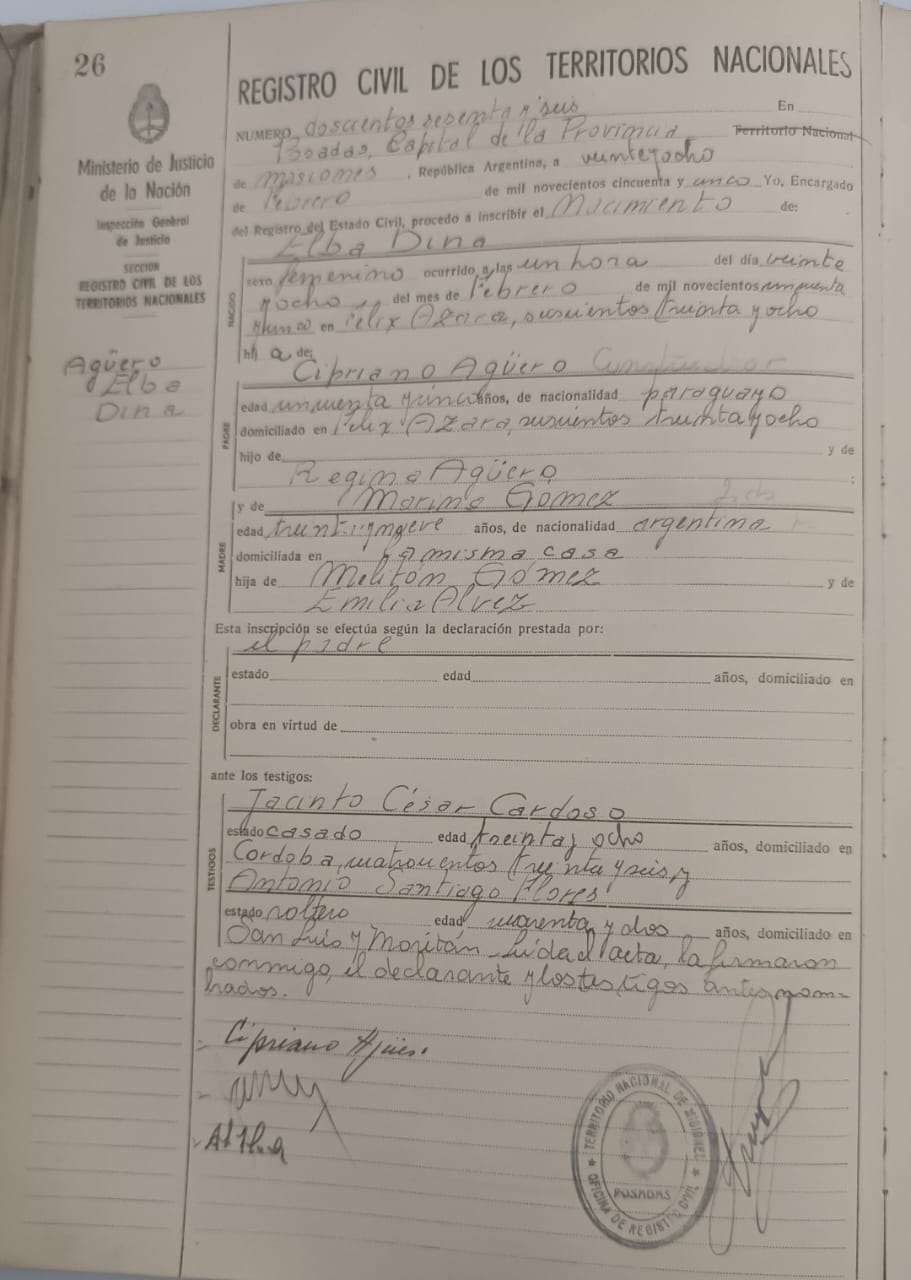 26
REGISTRO CIVIL DE LOS TERRITORIOS NACIONALES
Ministerio de Justicia
de la Nación
Inspección General
de Justicia
SECCION
REGISTRO CIVIL DE LOS
TERRITORIOS NACIONALES
Agüero
Elba
Dina
NUMERO doscientos sesenta y seis En
Posadas, Capital de la Provincia Territorio Nacional
de Misiones, República Argentina, a veinteyocho
de Febrero de mil novecientos cincuenta y cinco Yo, Encargado
del Registro del Estado Civil, procedo a inscribir el Nacimiento de:
Elba Dina
NACIDO
sexo femenino ocurrido a las un hora del día veinte
yocho del mes de Febrero de mil novecientos cincuenta
y cinco en Felix Azara, seiscientos treinta y ocho
hij a de:
Cipriano Agüero
PADRE
edad cincuenta y cinco años, de nacionalidad paraguayo
domiciliado en Felix Azara, seiscientos treinta y ocho
hijo de y de
Regina Agüero
y de Marina Gómez
MADRE
edad treinta y nueve años, de nacionalidad argentina
domiciliada en la misma casa
hija de Melitón Gómez y de
Emilia Alvez
Esta inscripción se efectúa según la declaración prestada por:
el padre
DECLARANTE
estado edad años, domiciliado en
obra en virtud de
ante los testigos:
TESTIGOS
Jacinto César Cardoso
estado casado edad treinta y ocho años, domiciliado en
Cordoba, cuatrocientos treinta y seis, y
Antonio Santiago Flores
estado soltero edad cuarenta y dos años, domiciliado en
San Luis y Moritán. Leída el acta, la firmaron
conmigo, el declarante y los testigos antes nom-
brados.
Cipriano Agüero
TERRITORIO NACIONAL DE MISIONES
POSADAS
OFICINA DE REGISTRO CIVIL